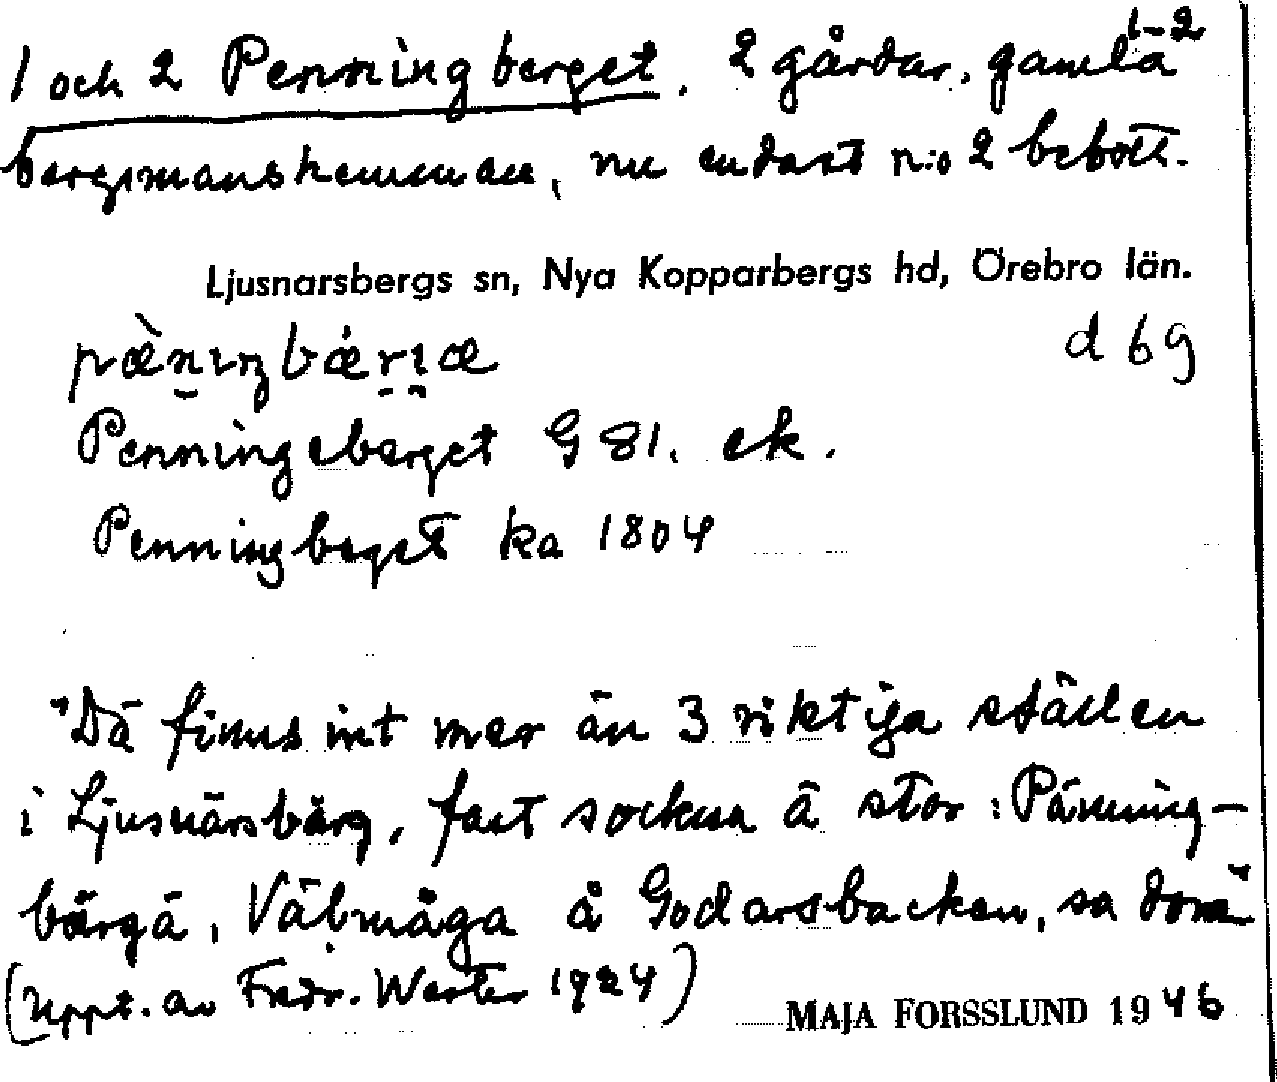 1 och 2 Penningberget. 2 gårdar, gamla 1-2
bergsmanshemman, nu endast n:o 2 bebott.
Ljusnarsbergs sn, Nya Kopparbergs hd, Örebro län.
d 69
Penningeberget G 81. ek.
Penningbeget ka 1804
"Dä finns int mer än 3 riktiga ställen
i Ljusnärsbärg, fast socknа ä stor: Pänning-
bärgä, Välmåga å Godarsbacken, sa domä"
(Uppt. av Fredr. Wester 1924)
MAJA FORSSLUND 1946